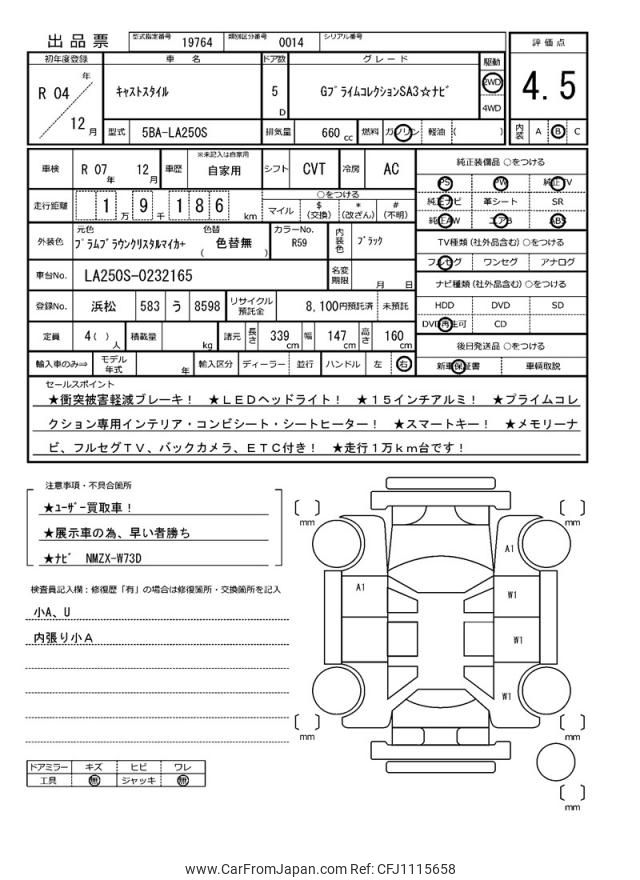 出品票 型式指定番号 19764 類別区分番号 0014 シリアル番号
初年度登録 車名 ドア数 グレード 駆動 評価点
R 04 年 12 月 キャストスタイル 5 D GプライムコレクションSA3☆ナビ 2WD 4WD 4.5
型式 5BA-LA250S 排気量 660 cc 燃料 ガソリン 軽油 ( ) 内装 A B C
車検 R 07 年 12 月 車歴 ※未記入は自家用 自家用 シフト CVT 冷房 AC 純正装備品 ○をつける
PS PW 純正TV
走行距離 1 万 9 千 1 8 6 km ○をつける マイル $ (交換) * (改ざん) # (不明) 純正ナビ 革シート SR
純正AW エアB ABS
外装色 元色 プラムブラウンクリスタルマイカ+ 色替 ( 色替無 ) カラーNo. R59 内装色 ブラック TV種類 (社外品含む) ○をつける
フルセグ ワンセグ アナログ
車台No. LA250S-0232165 名変期限 月 日 ナビ種類 (社外品含む) ○をつける
登録No. 浜松 583 う 8598 リサイクル預託金 8,100円預託済 未預託 HDD DVD SD
DVD再生可 CD
定員 4( ) 人 積載量 kg 諸元 長さ 339 cm 幅 147 cm 高さ 160 cm 後日発送品 ○をつける
輸入車のみ⇒ モデル年式 年 輸入区分 ディーラー 並行 ハンドル 左 右 新車保証書 車輌取説
セールスポイント
★衝突被害軽減ブレーキ！ ★ＬＥＤヘッドライト！ ★１５インチアルミ！ ★プライムコレ
クション専用インテリア・コンビシート・シートヒーター！ ★スマートキー！ ★メモリーナ
ビ、フルセグＴＶ、バックカメラ、ＥＴＣ付き！ ★走行１万ｋｍ台です！
注意事項・不具合箇所
★ユーザー買取車！
★展示車の為、早い者勝ち
★ナビ NMZX-W73D
検査員記入欄：修復歴「有」の場合は修復箇所・交換箇所を記入
小A、U
内張り小A
mm
mm
A1
A1
W1
W1
W1
mm
mm
mm
ドアミラー キズ ヒビ ワレ
工具 無 ジャッキ 無
www.CarFromJapan.com Ref: CFJ1115658